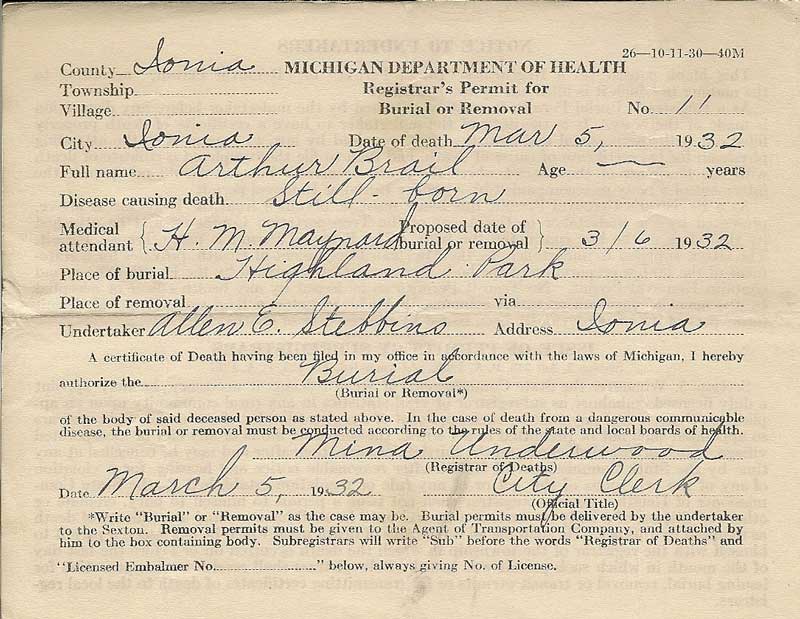 26—10-11-30—40M
County Ionia MICHIGAN DEPARTMENT OF HEALTH
Township Registrar's Permit for
Village Burial or Removal No. 11
City Ionia Date of death Mar 5, 1932
Full name Arthur Brail Age — years
Disease causing death Still-born
Medical attendant { H. M. Maynard Proposed date of burial or removal } 3/6 1932
Place of burial Highland Park
Place of removal via
Undertaker Allen E. Stebbins Address Ionia
A certificate of Death having been filed in my office in accordance with the laws of Michigan, I hereby
authorize the Burial
(Burial or Removal*)
of the body of said deceased person as stated above. In the case of death from a dangerous communicable
disease, the burial or removal must be conducted according to the rules of the state and local boards of health.
Mina Underwood
(Registrar of Deaths)
Date March 5, 1932 City Clerk
(Official Title)
*Write "Burial" or "Removal" as the case may be. Burial permits must be delivered by the undertaker
to the Sexton. Removal permits must be given to the Agent of Transportation Company, and attached by
him to the box containing body. Subregistrars will write "Sub" before the words "Registrar of Deaths" and
"Licensed Embalmer No. " below, always giving No. of License.